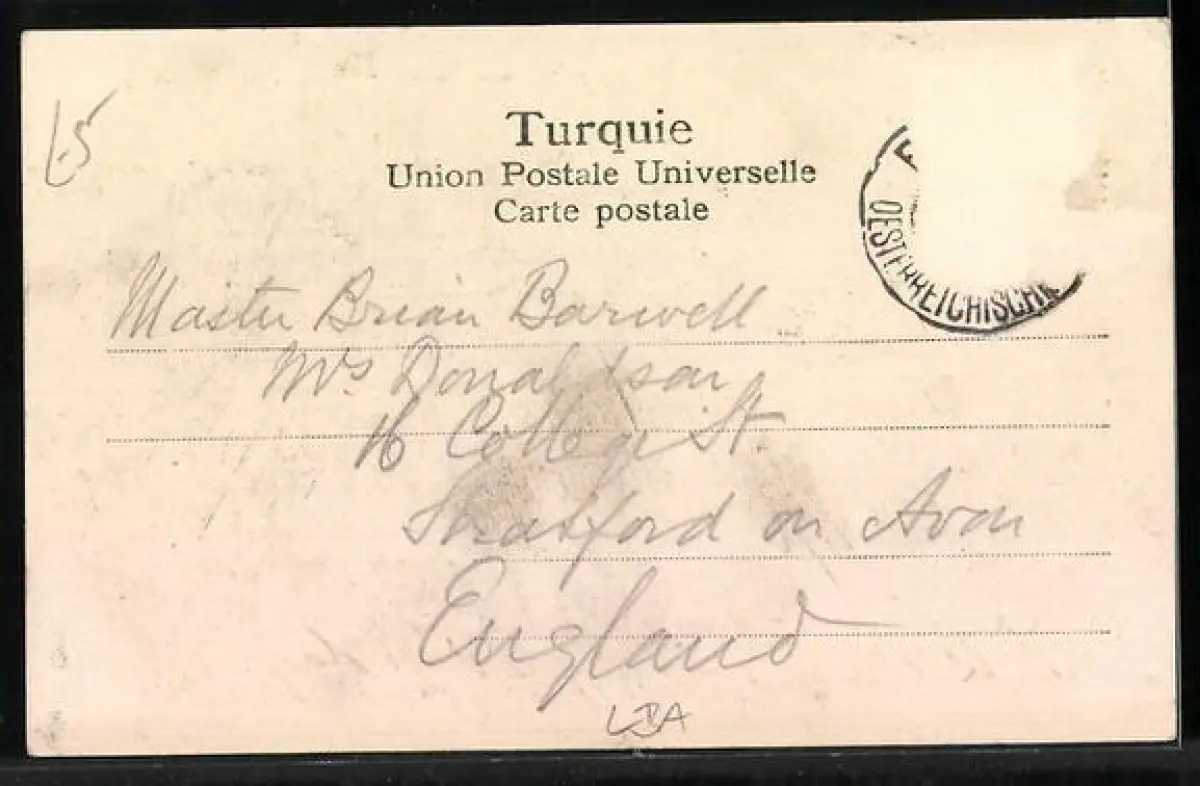 5
Turquie
Union Postale Universelle
Carte postale
OESTERREICHISCH
Master Brian Barwell
Mrs Donaldson
16 College St.
Stratford on Avon
England